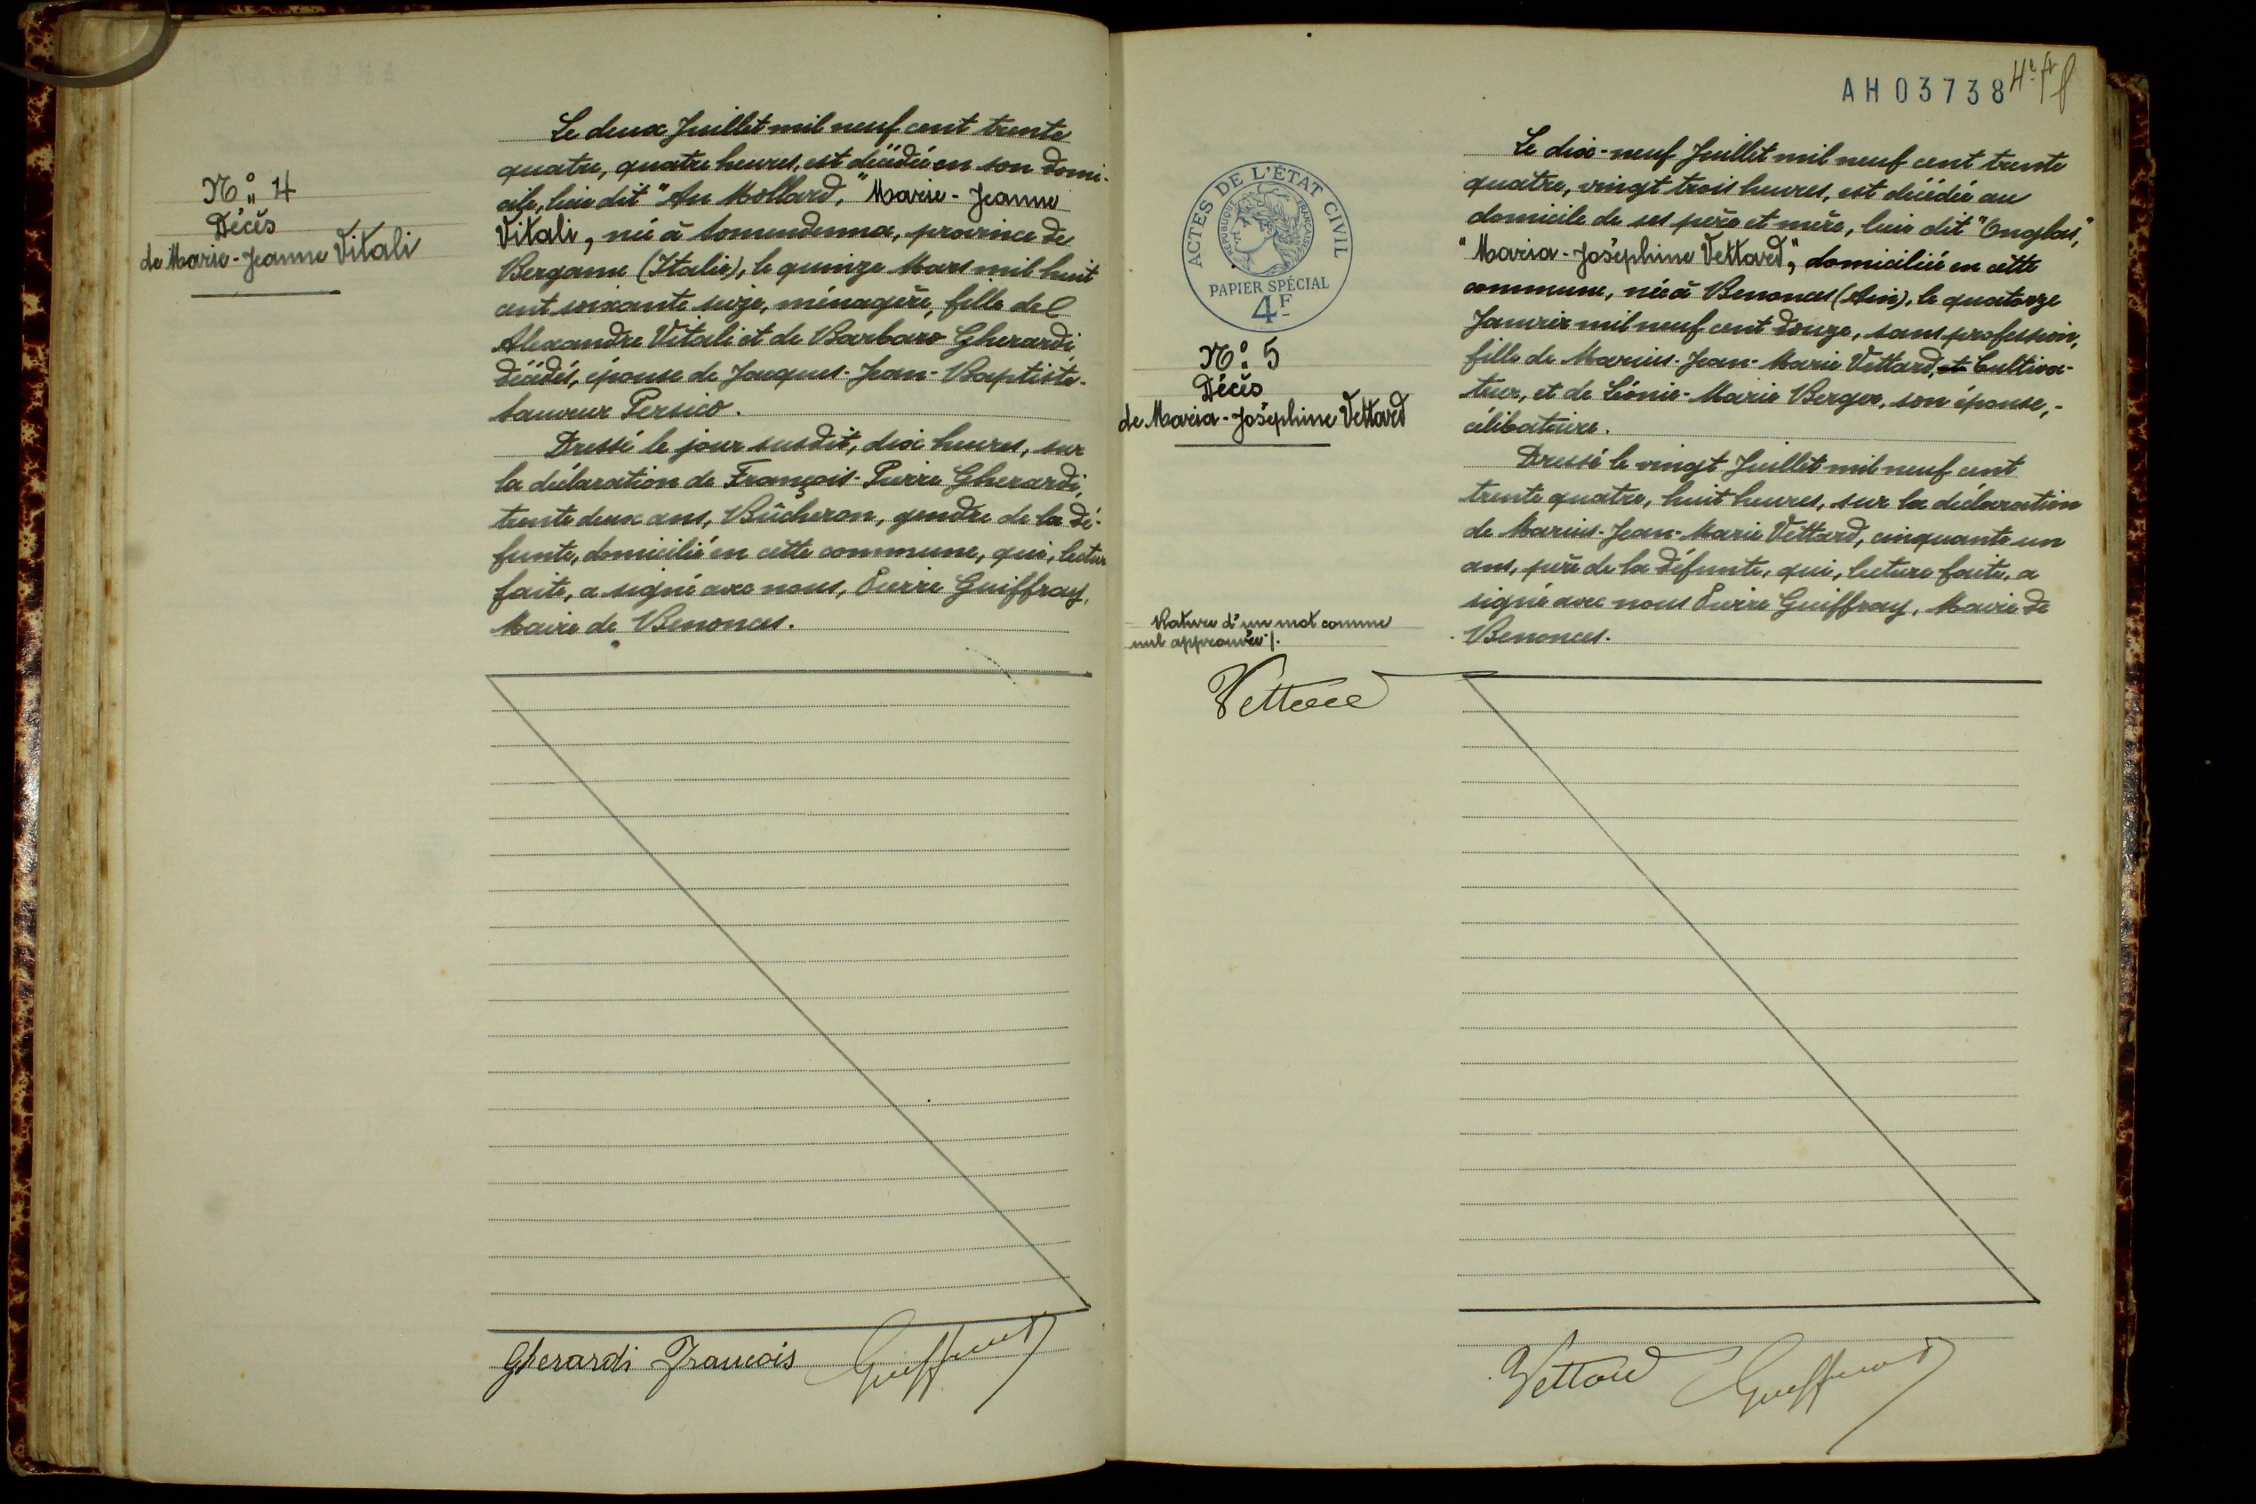 N° 4
Décès
de Marie-Jeanne Vitali
Le deux Juillet mil neuf cent trente
quatre, quatre heures, est décédée en son domi-
cile, lieu dit "Au Mollard," Marie-Jeanne
Vitali, née à Somendenna, province de
Bergame (Italie), le quinze Mars mil huit
cent soixante seize, ménagère, fille de
Alexandre Vitali et de Barbara Gherardi
décédés, épouse de Jacques-Jean-Baptiste-
Sauveur Persico.
Dressé le jour susdit, dix heures, sur
la déclaration de François-Pierre Gherardi,
trente deux ans, Bûcheron, gendre de la dé-
funte, domicilié en cette commune, qui, lecture
faite, a signé avec nous, Pierre Guiffray,
Maire de Benonces.
Gherardi François Guiffray
AH 03738
4e
ACTES DE L'ÉTAT CIVIL
RÉPUBLIQUE FRANÇAISE
PAPIER SPÉCIAL
4F
N° 5
Décès
de Maria-Joséphine Vettard
Rature d'un mot comme
nul approuvée
Vettard
Le dix-neuf Juillet mil neuf cent trente
quatre, vingt trois heures, est décédée au
domicile de ses père et mère, lieu dit "Onglas",
"Maria-Joséphine Vettard", domiciliée en cette
commune, née à Benonces (Ain), le quatorze
Janvier mil neuf cent douze, sans profession,
fille de Marius-Jean-Marie Vettard, et Cultiva-
teur, et de Léonie-Marie Berger, son épouse,-
célibataire.
Dressé le vingt Juillet mil neuf cent
trente quatre, huit heures, sur la déclaration
de Marius-Jean-Marie Vettard, cinquante un
ans, père de la défunte, qui, lecture faite, a
signé avec nous Pierre Guiffray, Maire de
Benonces.
Vettard Guiffray